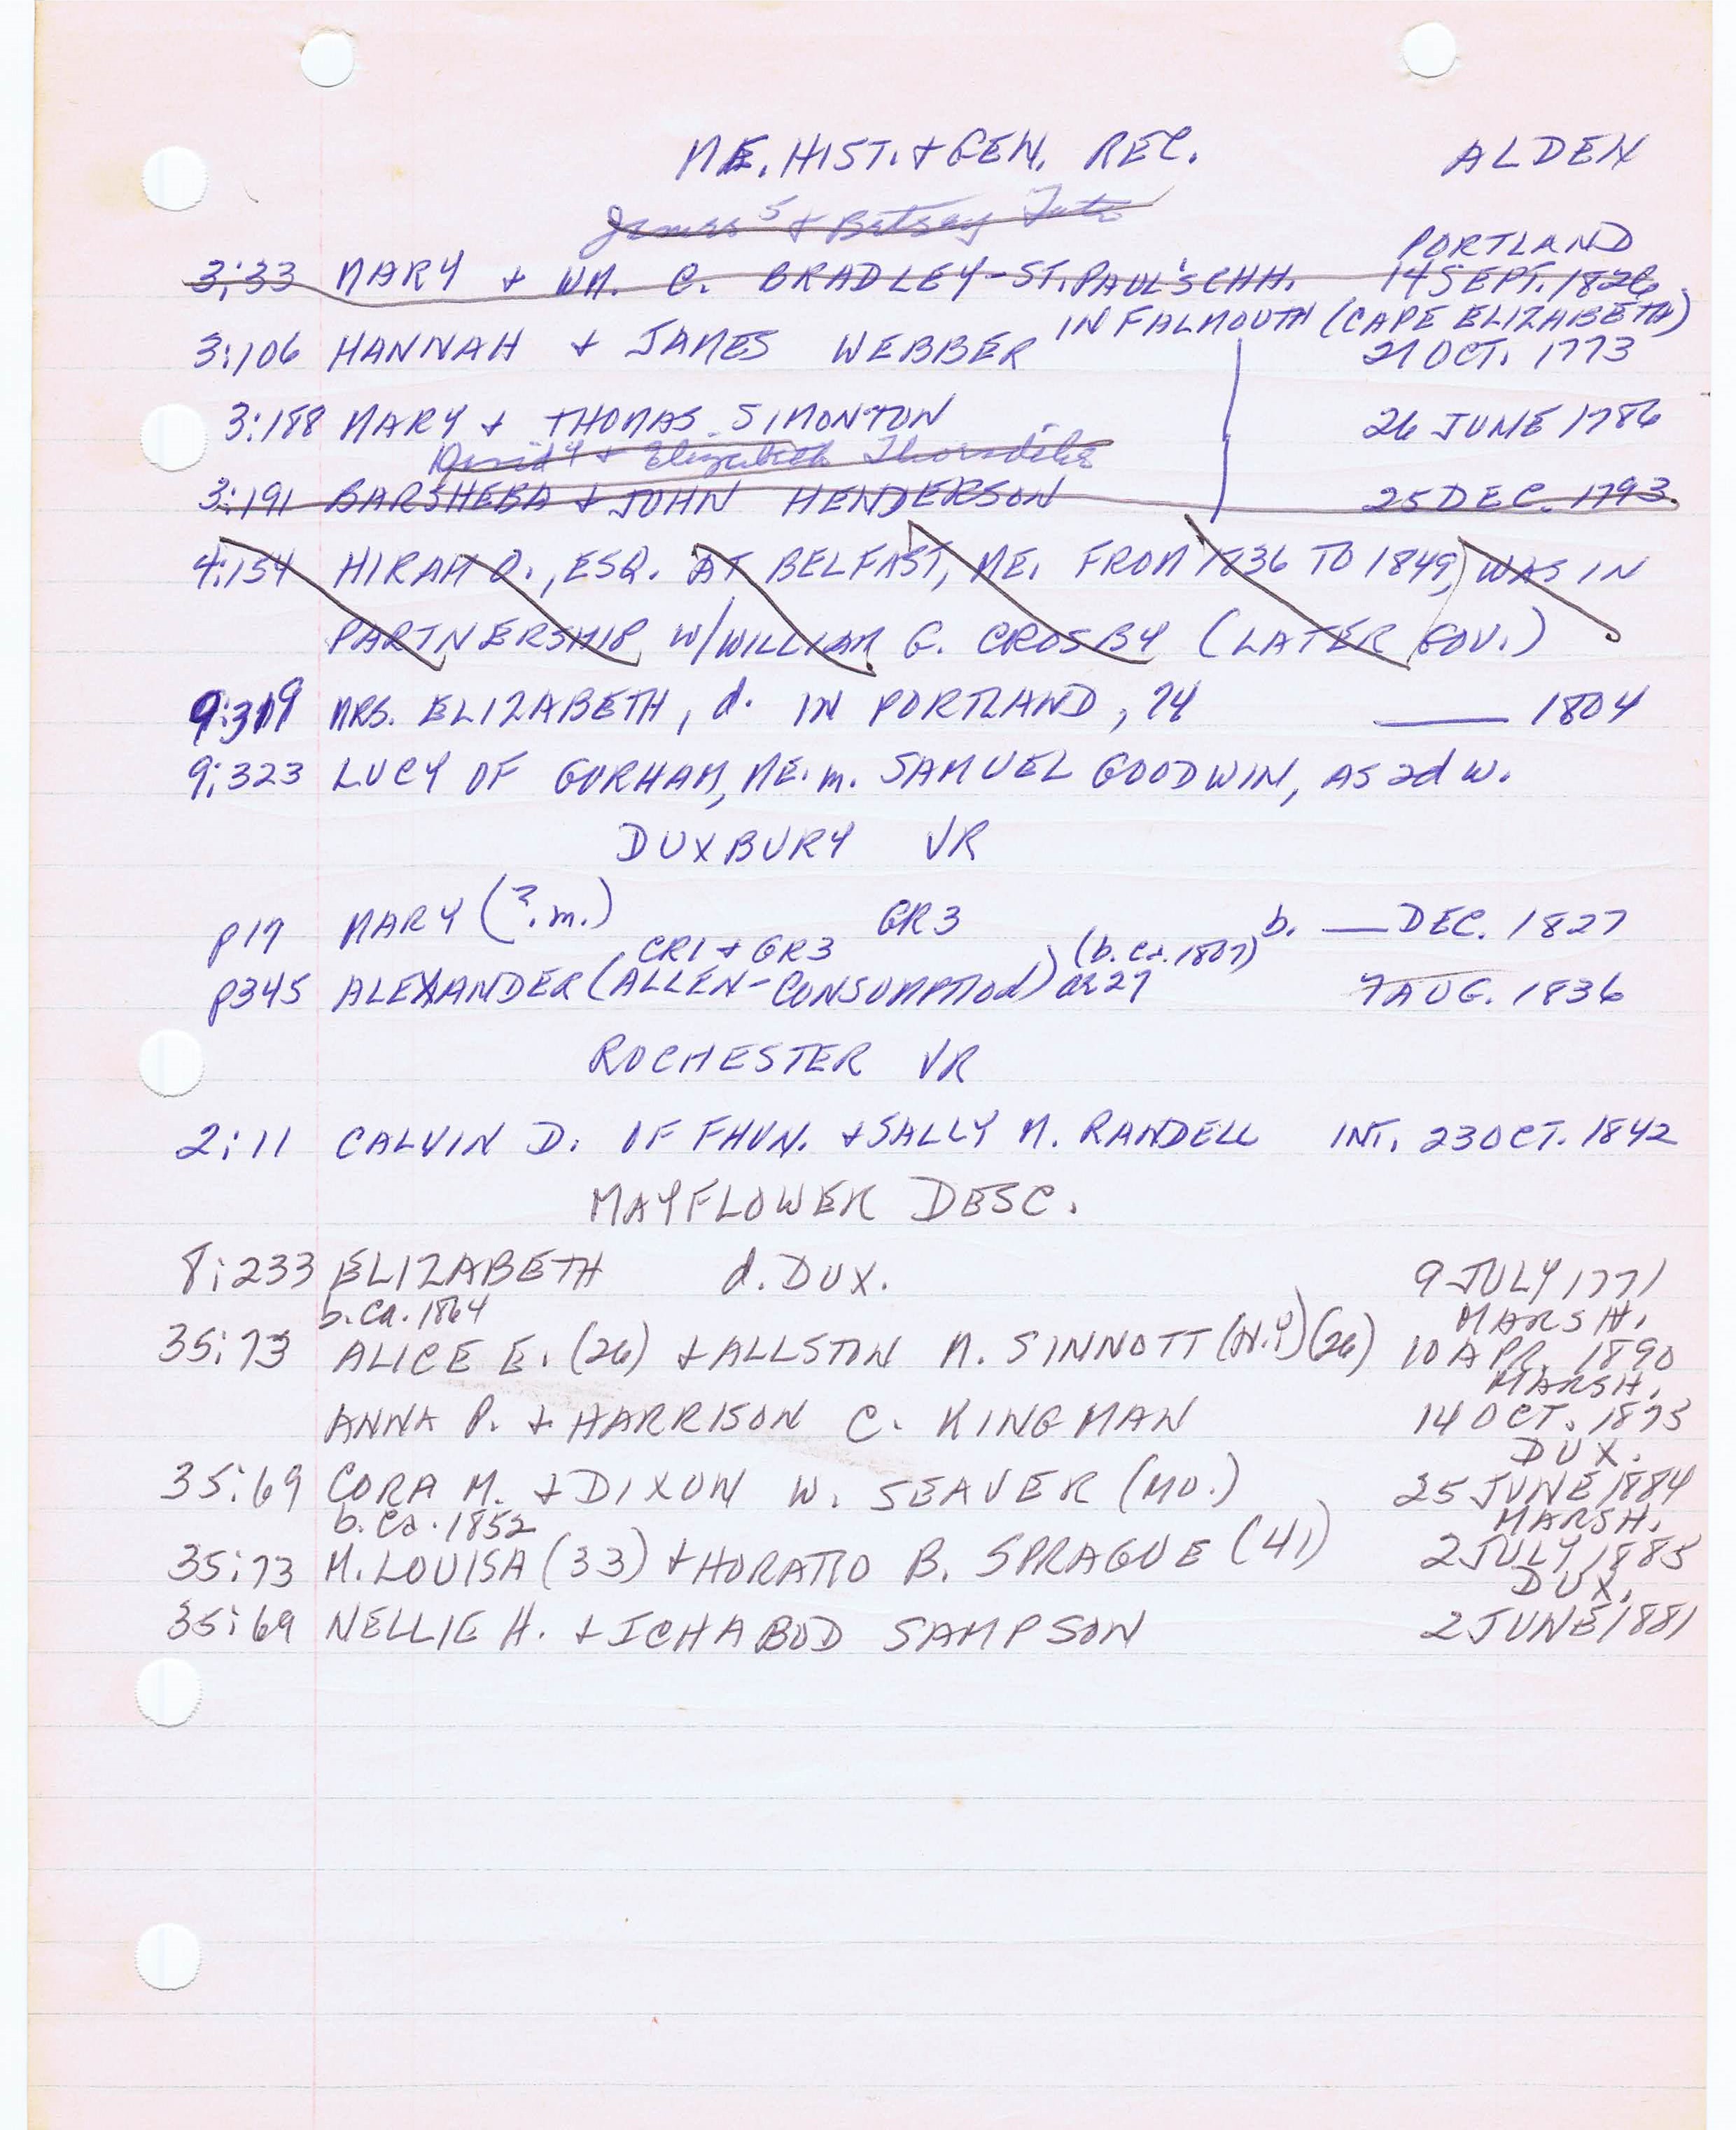 ME. HIST. & GEN. REC. ALDEN
James 5 & Betsey Tate
PORTLAND
3:33 MARY & WM. C. BRADLEY-ST. PAUL'S CHH. 14 SEPT. 1826
IN FALMOUTH (CAPE ELIZABETH)
3:106 HANNAH & JAMES WEBBER 21 OCT. 1773
3:188 MARY & THOMAS SIMONTON 26 JUNE 1786
David 4 & Elizabeth Thorndike
3:191 BARSHEBA & JOHN HENDERSON 25 DEC. 1793.
4:154 HIRAM O., ESQ. AT BELFAST, ME. FROM 1836 TO 1849, WAS IN
PARTNERSHIP W/WILLIAM G. CROSBY (LATER GOV.)
9:319 MRS. ELIZABETH, d. IN PORTLAND, 74 ___ 1804
9:323 LUCY OF GORHAM, ME. m. SAMUEL GOODWIN, AS 2d W.
DUXBURY VR
p17 MARY (?.m.) GR3 b. ___ DEC. 1827
CR1 & GR3 (b. ca. 1807)
p345 ALEXANDER (ALLEN-CONSUMPTION) ae 27 7 AUG. 1836
ROCHESTER VR
2:11 CALVIN D. OF FHVN. & SALLY M. RANDELL INT. 23 OCT. 1842
MAYFLOWER DESC.
8:233 ELIZABETH d. DUX. 9 JULY 1771
b. ca. 1864 MARSH.
35:73 ALICE E. (26) & ALLSTON M. SINNOTT (N.Y) (26) 10 APR. 1890
MARSH.
ANNA P. & HARRISON C. KINGMAN 14 OCT. 1875
DUX.
35:69 CORA M. & DIXON W. SEAVER (MO.) 25 JUNE 1884
b. ca. 1852 MARSH.
35:73 M. LOUISA (33) & HORATIO B. SPRAGUE (41) 2 JULY 1885
DUX.
35:69 NELLIE H. & ICHABOD SAMPSON 2 JUNE 1881